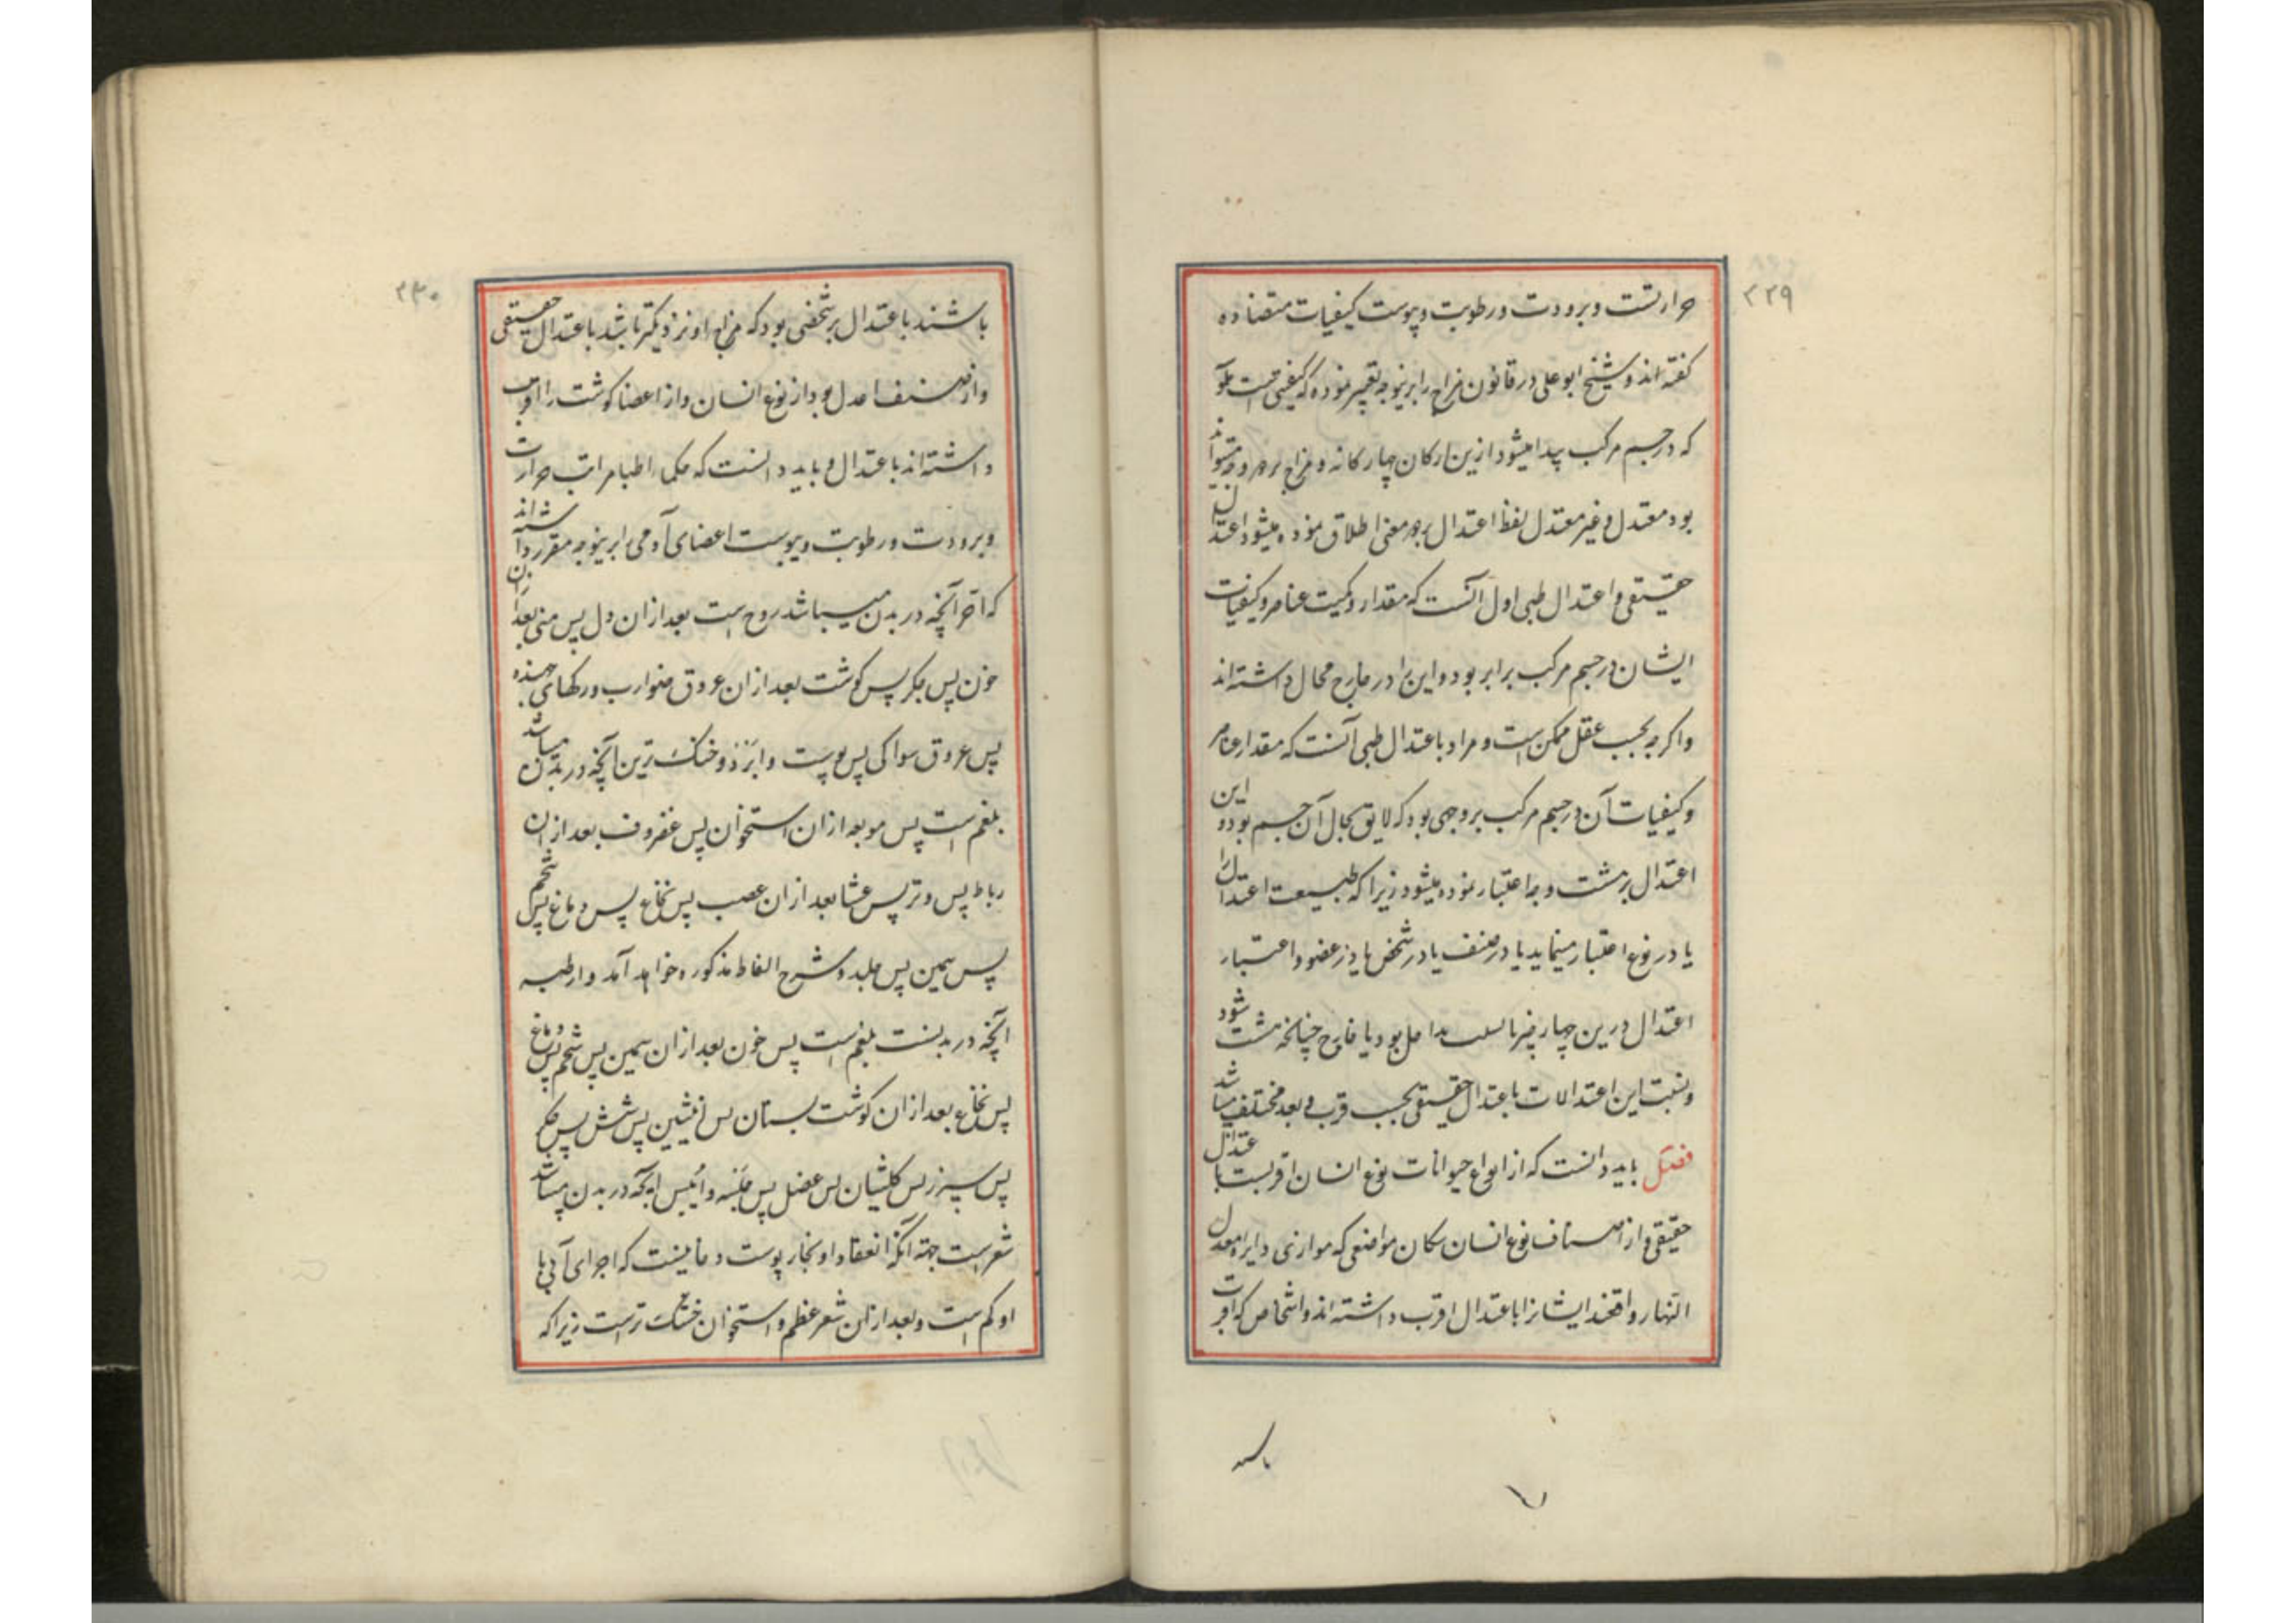 ۲۲۹
حرارتست و برودت و رطوبت و یبوست کیفیات متضاده
کفته اند و شیخ ابو علی در قانون مزاج را برینوجه تفسیر نموده که کیفیتی است
که در جسم مرکب پیدا میشود ازین ارکان چهارکانه و مزاج بر دو وجه میتواند
بود معتدل و غیر معتدل لفظ اعتدال بر دو معنی اطلاق نموده میشود اعتدال
حقیقی و اعتدال طبی اول آنست که مقدار و کمیت عناصر و کیفیات
ایشان در جسم مرکب برابر بود و این را در خارج محال داشته اند
واکرچه بحسب عقل ممکن است و مراد باعتدال طبی آنست که مقدار عناصر
و کیفیات آن در جسم مرکب بر وجهی بود که لایق بحال آن جسم بود و این
اعتدال بر هشت وجه اعتبار نموده میشود زیرا که طبیعت اعتدال را
یا در نوع اعتبار مینماید یا در صنف یا در شخص یا در عضو و اعتبار
اعتدال درین چهار چیز یا بنسبت بداخل بود یا خارج چنانچه هشت شود
و نسبت این اعتدالات باعتدال حقیقی بحسب قرب و بعد مختلف میباشد
فصل باید دانست که از انواع حیوانات نوع انسان اقربست باعتدال
حقیقی و از اصناف نوع انسان سکان مواضعی که موازی دایره معدل
النهار واقعند ایشانرا باعتدال اقرب داشته اند و اشخاص که اقرب
باشند
۲۳۰
باشند باعتدال بر شخصی بود که مزاج او نزدیکتر باشد باعتدال حقیقی
واز صنف اعدل بود از نوع انسان واز اعضا کوشت را اقرب
داشته اند باعتدال و باید دانست که حکما و اطبا مراتب حرارت
و برودت و رطوبت و یبوست اعضای آدمی را برینوجه مقرر داشته اند
که احر آنچه در بدن میباشد روح است بعد از ان دل پس منی بعد از ان
خون پس جکر پس کوشت بعد از ان عروق ضوارب و رکهای جهنده
پس عروق سواکن پس پوست وابرد و خنک ترین آنچه در بدن میباشد
بلغم است پس مو بعد از ان استخوان پس غضروف بعد از ان
رباط پس وتر پس غشا بعد از ان عصب پس نخاع پس دماغ پس شحم
پس سمین پس جلد و شرح الفاظ مذکوره خواهد آمد وارطب
آنچه در بدنست بلغم است پس خون بعد از ان سمین پس شحم پس دماغ
پس نخاع بعد از ان کوشت پستان پس انثیین پس شش پس جکر
پس سپرز پس کلیتان پس عضل پس جلد و ایبس آنچه در بدن میباشد
شعر است جهة آنکه انعقاد او بخار پوست دخانیست که اجزای آبی با
او کم است و بعد از ان شعر عظم و استخوان خشک ترست زیرا که